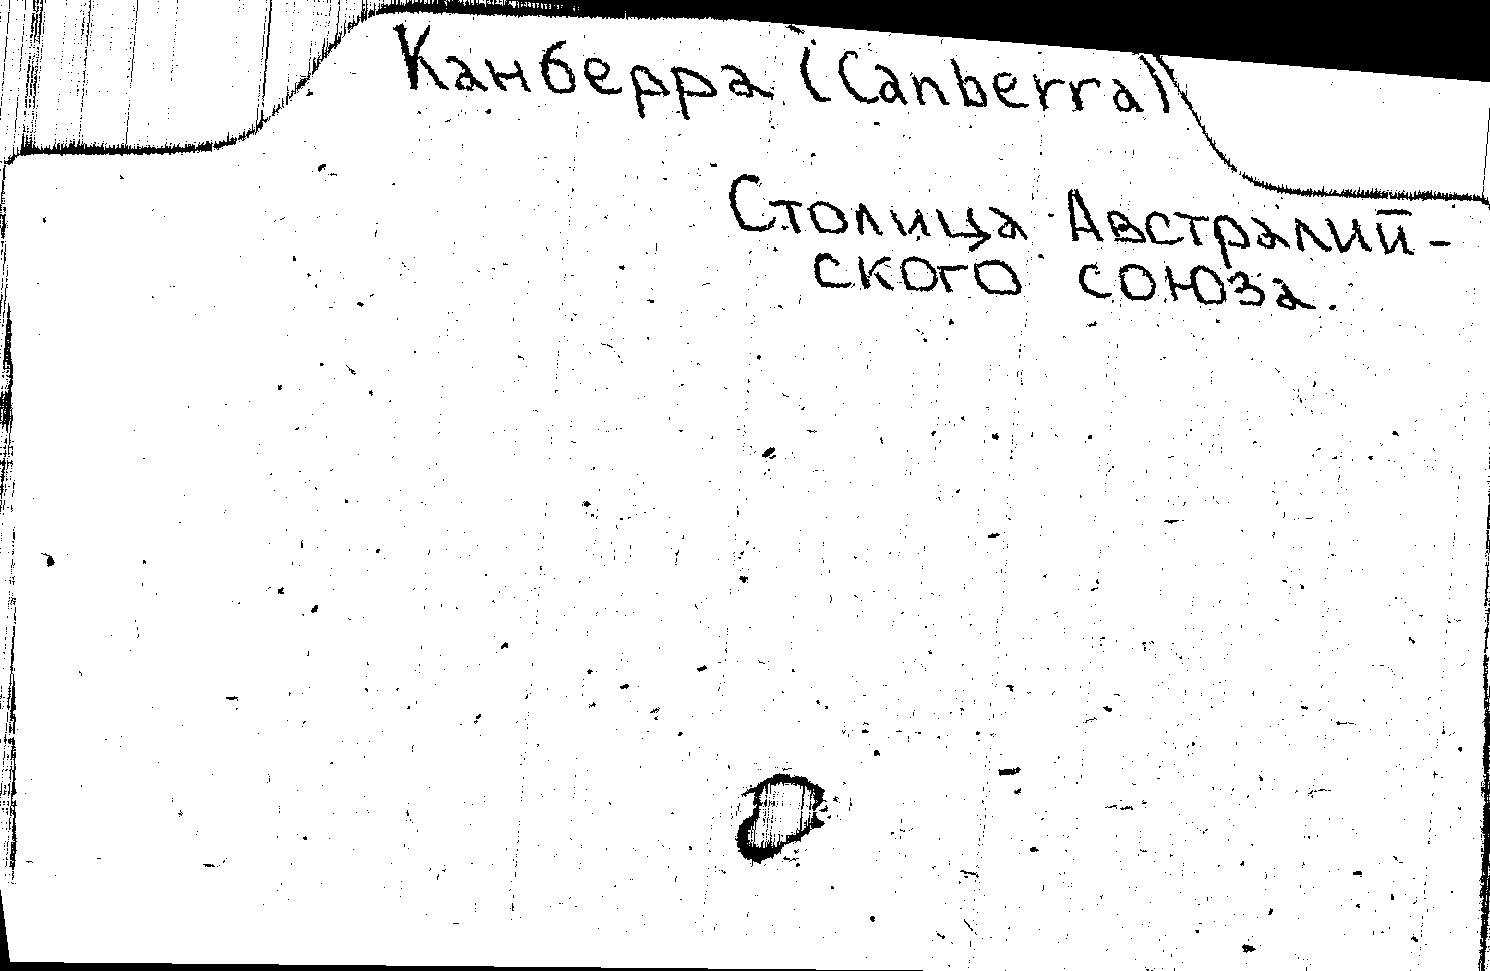 Канберра (Canberra)
Столица Австралий-
ского союза.